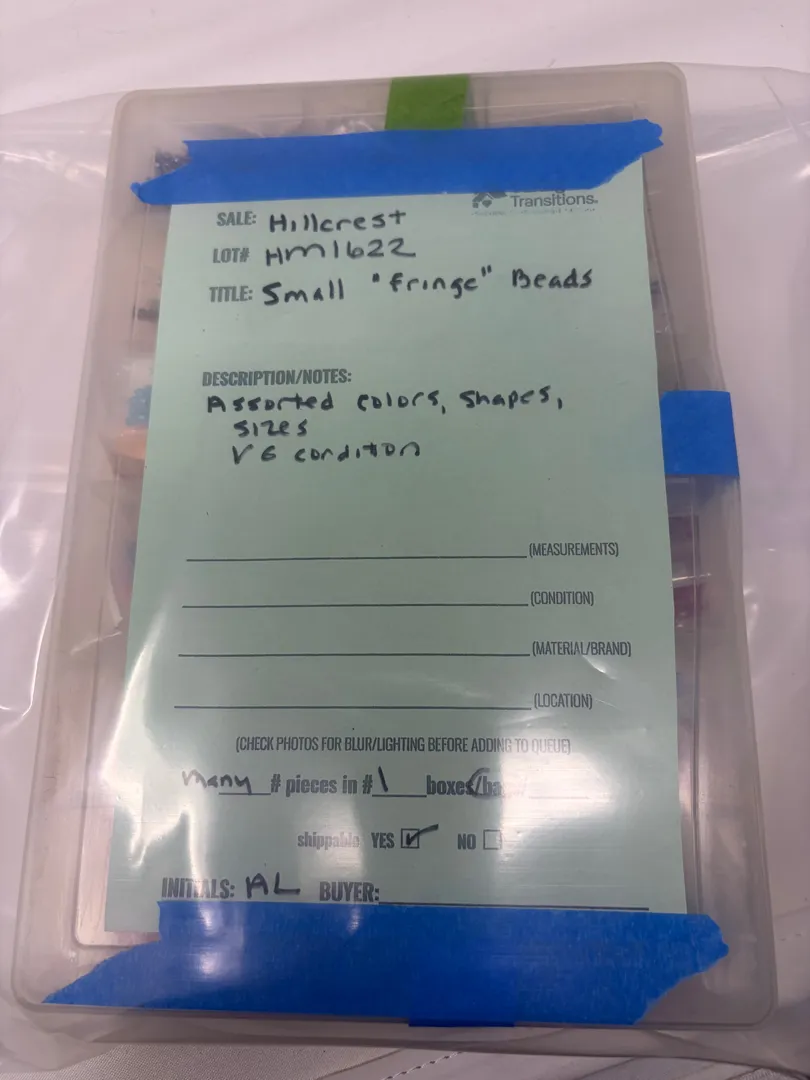 Transitions.
SALE: Hillcrest
LOT# HM1622
TITLE: Small "fringe" Beads
DESCRIPTION/NOTES:
Assorted colors, shapes,
sizes
VG conditon
(MEASUREMENTS)
(CONDITION)
(MATERIAL/BRAND)
(LOCATION)
(CHECK PHOTOS FOR BLUR/LIGHTING BEFORE ADDING TO QUEUE)
many # pieces in # 1 boxes/
shippable YES NO
INITIALS: AL BUYER: